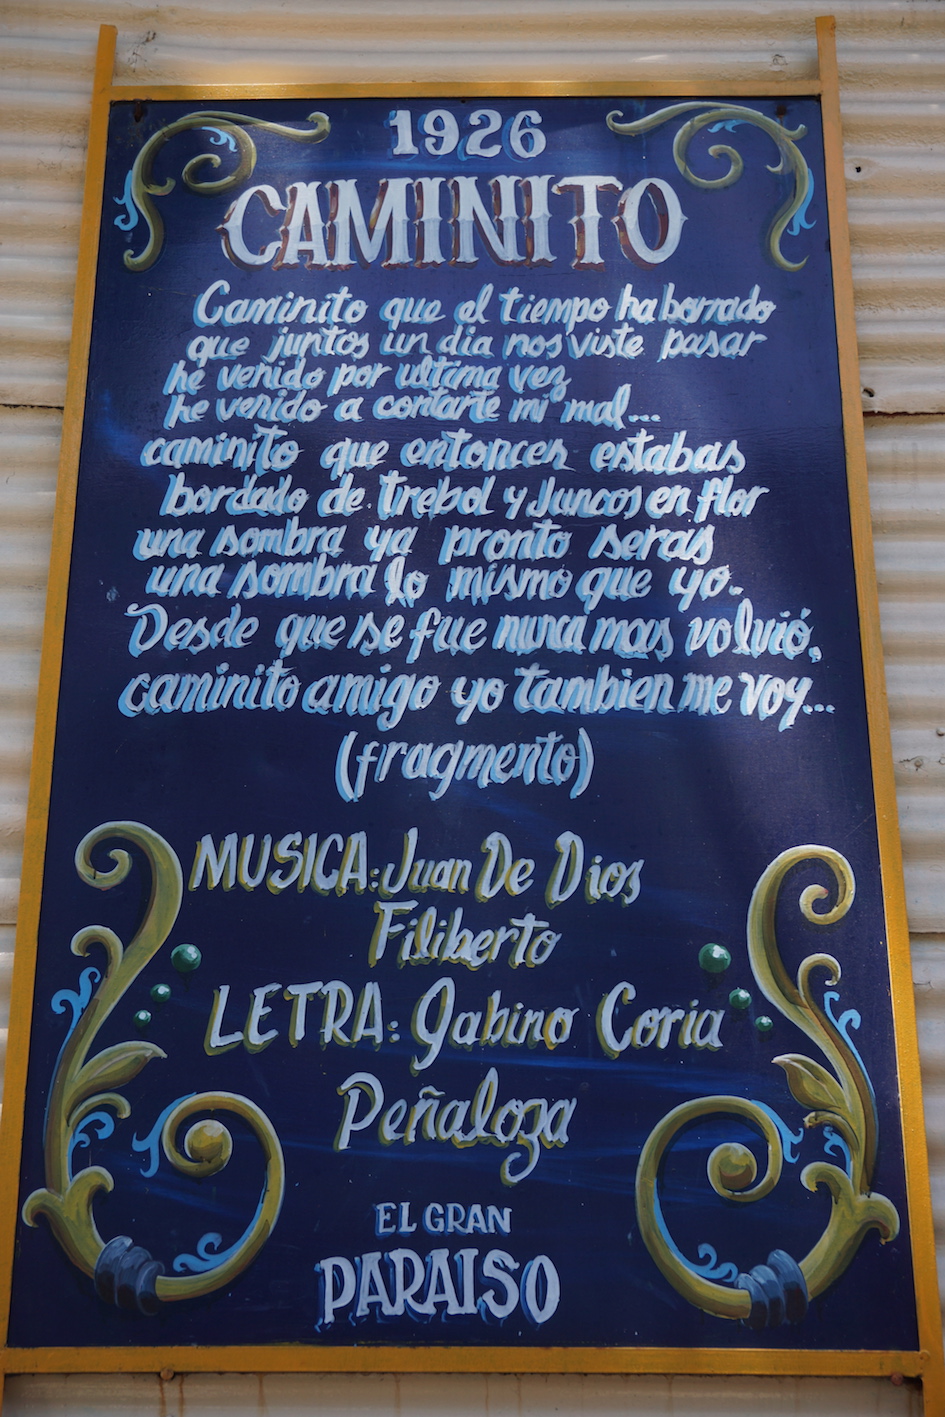 1926
CAMINITO
Caminito que el tiempo ha borrado
que juntos un dia nos viste pasar
he venido por ultima vez
he venido a contarte mi mal...
caminito que entonces estabas
bordado de trebol y Juncos en flor
una sombra ya pronto seras
una sombra lo mismo que yo.
Desde que se fue nunca mas volvió,
caminito amigo yo tambien me voy...
(fragmento)
MUSICA: Juan De Dios
Filiberto
LETRA: Gabino Coria
Peñaloza
EL GRAN
PARAISO